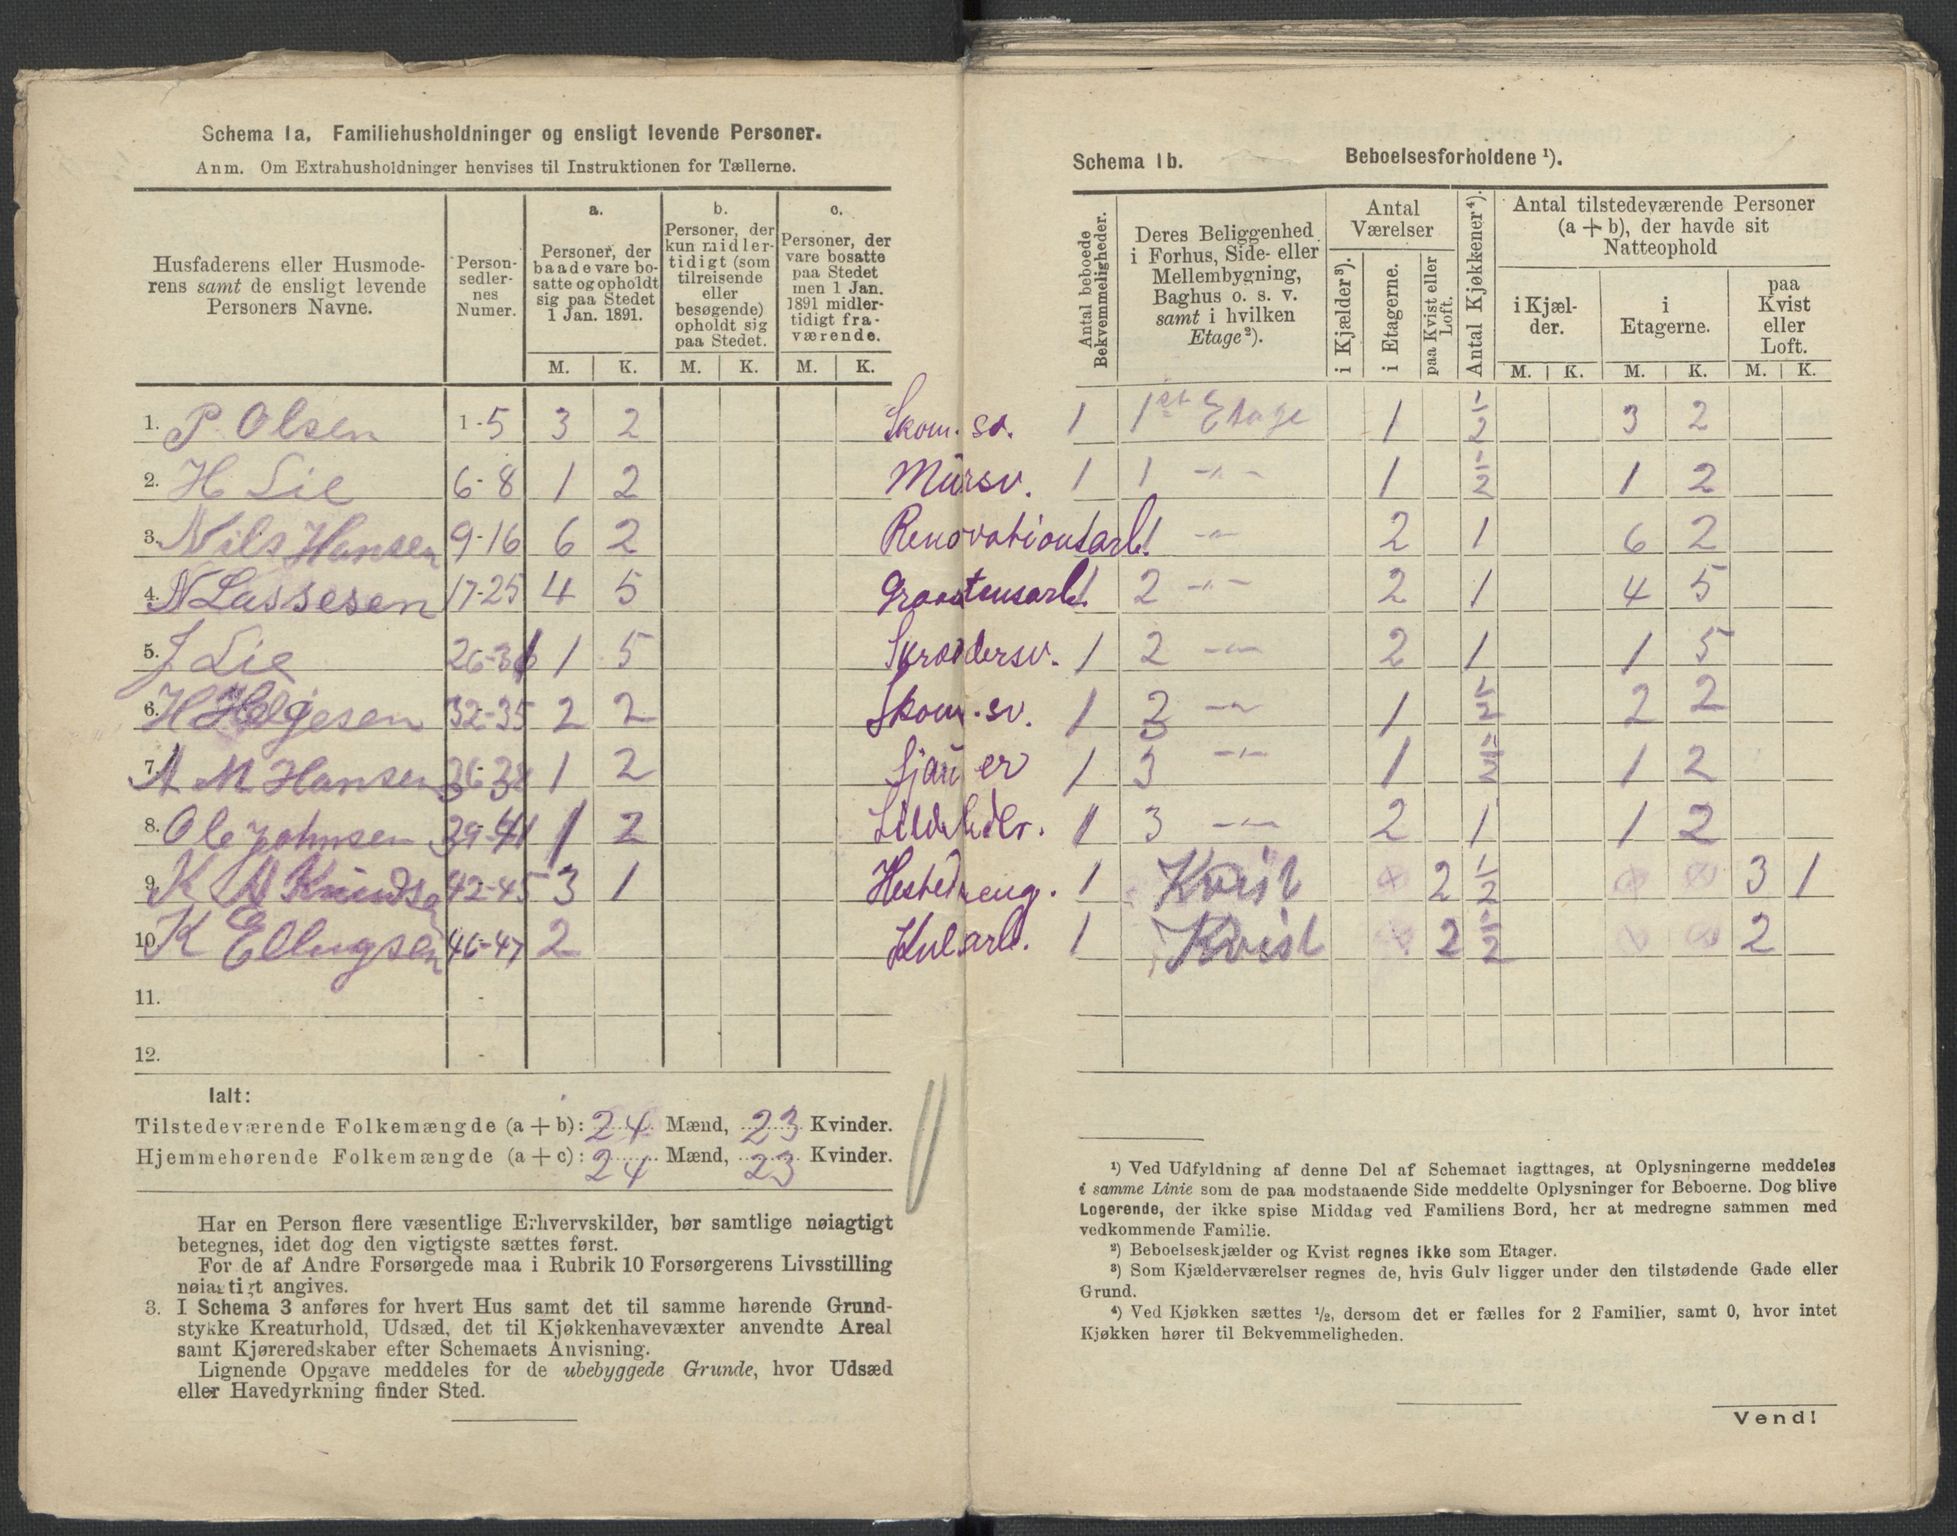 Schema 1a. Familiehusholdninger og ensligt levende Personer.
Anm. Om Extrahusholdninger henvises til Instruktionen for Tællerne.
Husfaderens eller Husmode-
rens samt de ensligt levende
Personers Navne.
Person-
sedler-
nes
Numer.
a.
Personer, der
baade vare bo-
satte og opholdt
sig paa Stedet
1 Jan. 1891.
b.
Personer, der
kun midler-
tidigt (som
tilreisende
eller
besøgende)
opholdt sig
paa Stedet.
c.
Personer, der
vare bosatte
paa Stedet
men 1 Jan.
1891 midler-
tidigt fra-
værende.
M. K. M. K. M. K.
1. P. Olsen 1-5 3 2
2. H Lie 6-8 1 2
3. Nils Hansen 9-16 6 2
4. N Lassesen 17-25 4 5
5. J Lie 26-31 1 5
6. H Helgesen 32-35 2 2
7. A M Hansen 36-38 1 2
8. Ole Johnsen 39-41 1 2
9. K A Knudsen 42-45 3 1
10. K Ellingsen 46-47 2
11.
12.
Ialt:
Tilstedeværende Folkemængde (a + b): 24 Mænd, 23 Kvinder.
Hjemmehørende Folkemængde (a + c): 24 Mænd, 23 Kvinder.
Har en Person flere væsentlige Erhvervskilder, bør samtlige nøiagtigt
betegnes, idet dog den vigtigste sættes først.
For de af Andre Forsørgede maa i Rubrik 10 Forsørgerens Livsstilling
nøiagtigt angives.
3. I Schema 3 anføres for hvert Hus samt det til samme hørende Grund-
stykke Kreaturhold, Udsæd, det til Kjøkkenhavevæxter anvendte Areal
samt Kjøreredskaber efter Schemaets Anvisning.
Lignende Opgave meddeles for de ubebyggede Grunde, hvor Udsæd
eller Havedyrkning finder Sted.
Schema 1b. Beboelsesforholdene ¹).
Antal beboede
Bekvemmeligheder.
Deres Beliggenhed
i Forhus, Side- eller
Mellembygning,
Baghus o. s. v.
samt i hvilken
Etage²).
Antal
Værelser
i Kjælder³).
i Etagerne.
paa Kvist eller
Loft.
Antal Kjøkkener⁴).
Antal tilstedeværende Personer
(a + b), der havde sit
Natteophold
i Kjæl-
der.
i
Etagerne.
paa
Kvist
eller
Loft.
M. K. M. K. M. K.
Skom. sv. 1 1ste Etage 1 1/2 3 2
Mursv. 1 1 -"- 1 1/2 1 2
Renovationsarb. 1 -"- 2 1 6 2
1 2 -"- 2 1 4 5
Skræddersv. 1 2 -"- 2 1 1 5
Skom. sv. 1 2 -"- 1 1/2 2 2
Sjauer 1 3 -"- 1 1/2 1 2
1 3 -"- 2 1 1 2
Hestedreng. 1 Kvist 2 1/2 3 1
Kularb. 1 Kvist 2 1/2 2
¹) Ved Udfyldning af denne Del af Schemaet iagttages, at Oplysningerne meddeles
i samme Linie som de paa modstaaende Side meddelte Oplysninger for Beboerne. Dog blive
Logerende, der ikke spise Middag ved Familiens Bord, her at medregne sammen med
vedkommende Familie.
²) Beboelseskjælder og Kvist regnes ikke som Etager.
³) Som Kjælderværelser regnes de, hvis Gulv ligger under den tilstødende Gade eller
Grund.
⁴) Ved Kjøkken sættes ¹/₂, dersom det er fælles for 2 Familier, samt 0, hvor intet
Kjøkken hører til Bekvemmeligheden.
Vend!